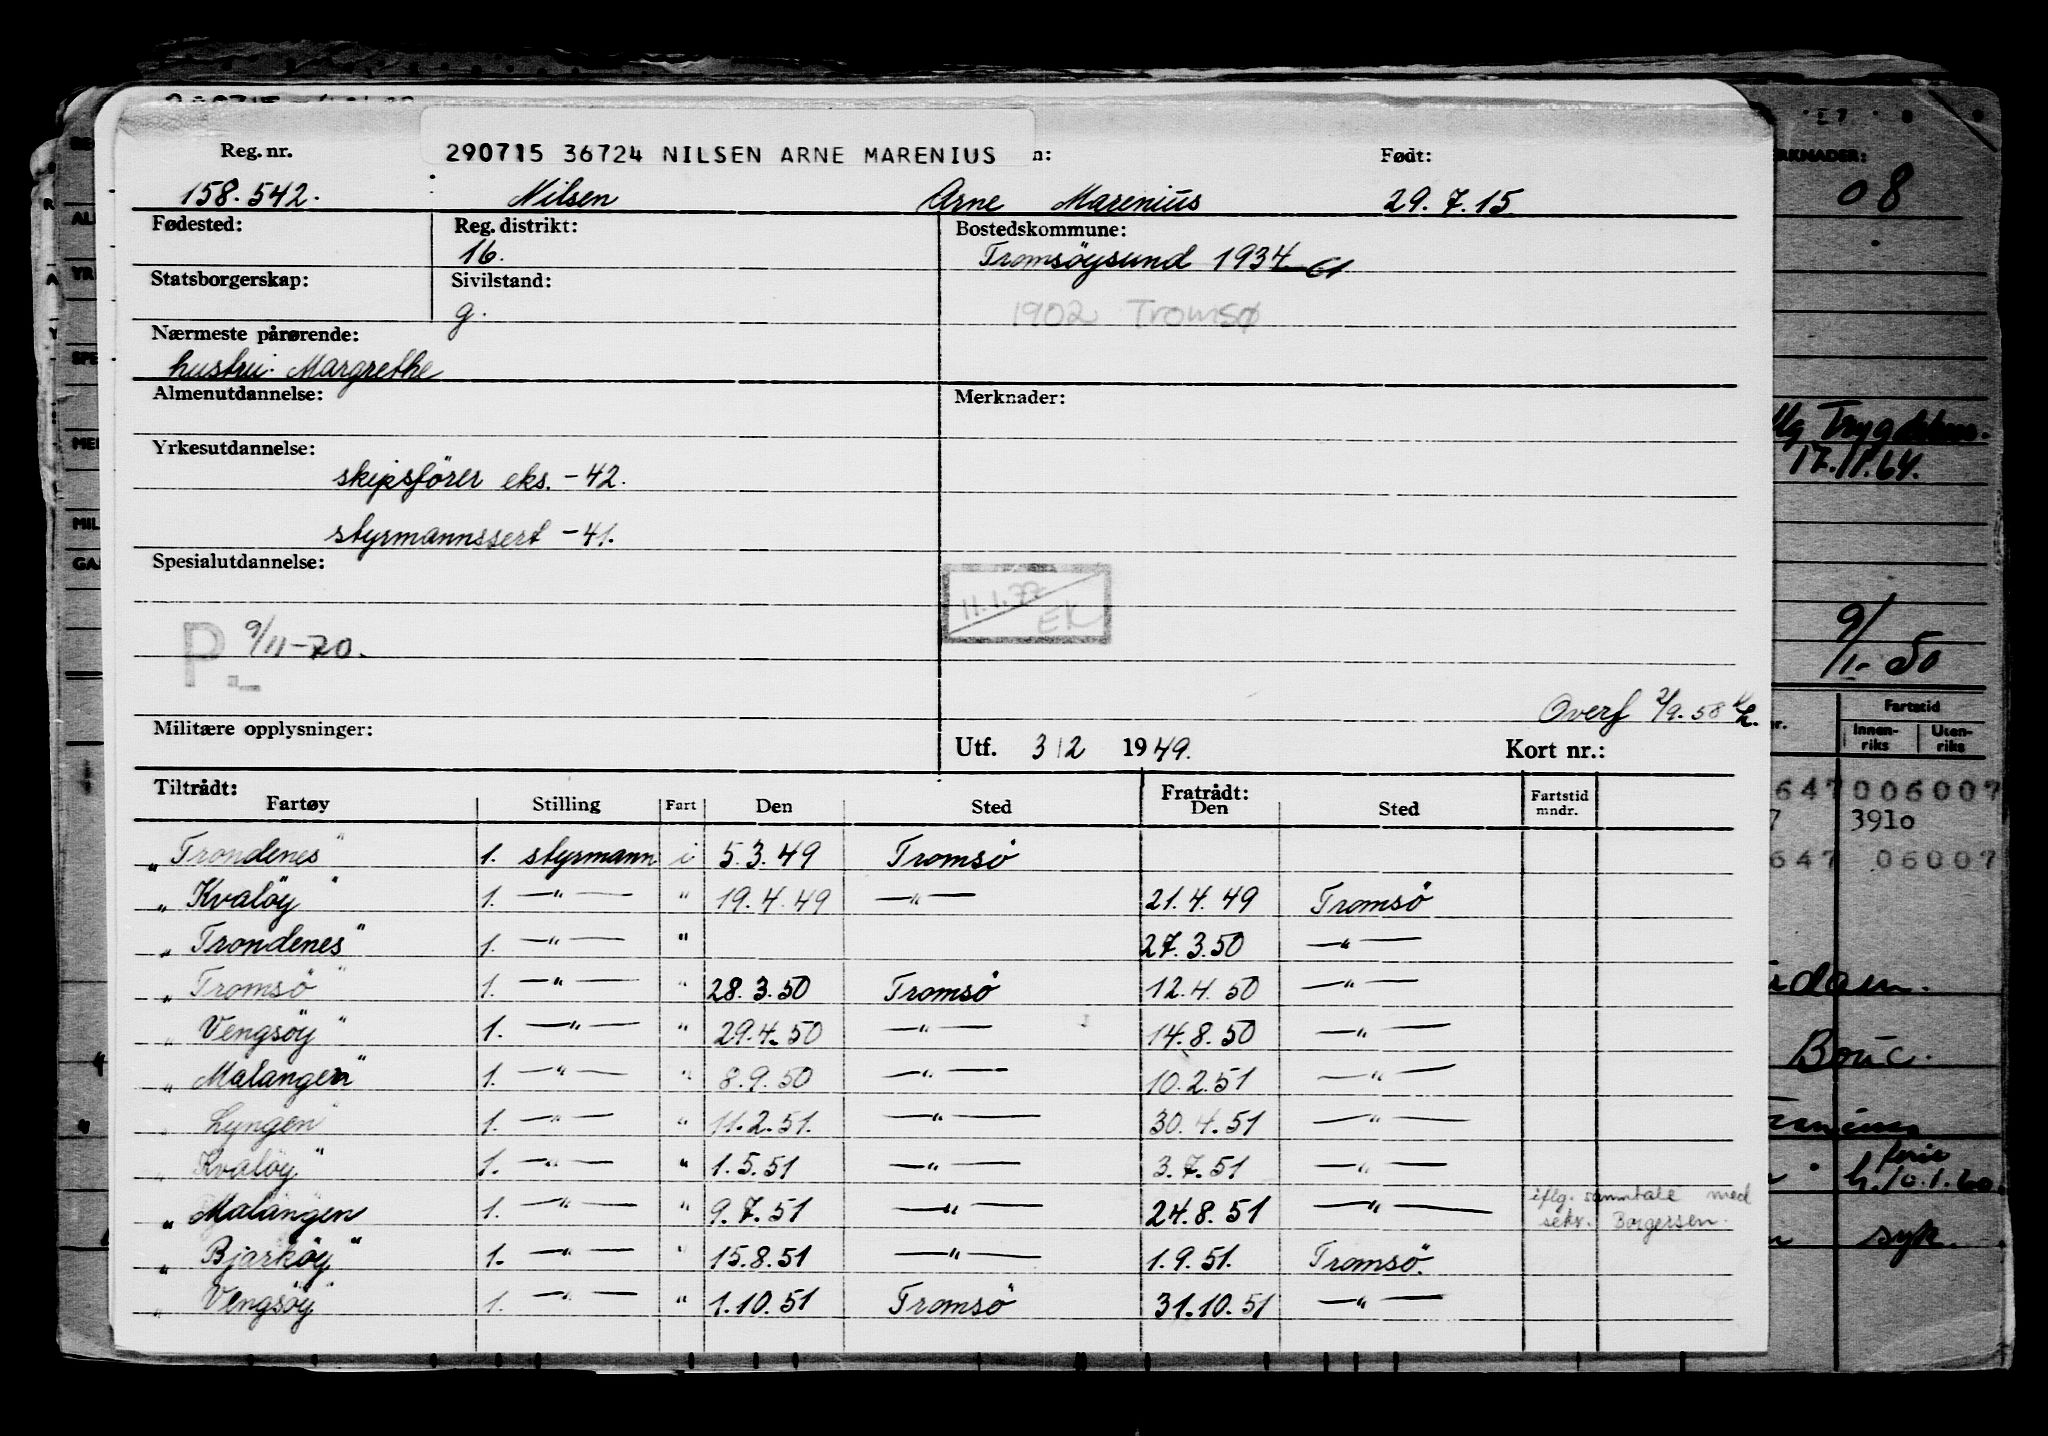 290715 36724 NILSEN ARNE MARENIUS n:
Reg. nr. Født:
158.542. Nilsen Arne Marenius 29.7.15
Fødested: Reg. distrikt: Bostedskommune:
16. Tromsöysund 1934-61
Statsborgerskap: Sivilstand:
g. 1902 Tromsø
Nærmeste pårørende:
hustru. Margrethe
Almenutdannelse: Merknader:
Yrkesutdannelse:
skipsförer eks. -42.
styrmannssert -41.
Spesialutdannelse:
11.1.77 EK
P. 9/11-70.
Overf 2/9.58
Militære opplysninger:
Utf. 3/2 1949. Kort nr.:
Tiltrådt: Fratrådt:
Fartøy Stilling Fart Den Sted Den Sted Fartstid mndr.
"Trondenes" 1. styrmann i 5.3.49 Tromsö
"Kvalöy" 1. —"— " 19.4.49 —"— 21.4.49 Tromsö
"Trondenes" 1. —"— " 27.3.50 —"—
"Tromsö" 1. —"— " 28.3.50 Tromsö 12.4.50 —"—
"Vengsöy" 1. —"— " 29.4.50 —"— 14.8.50 —"—
"Malangen" 1. —"— " 8.9.50 —"— 10.2.51 —"—
"Lyngen" 1. —"— " 11.2.51. —"— 30.4.51 —"—
"Kvalöy" 1. —"— " 1.5.51 —"— 3.7.51 —"—
"Malangen 1. —"— " 9.7.51 —"— 24.8.51 —"— iflg. samtale med
sekr. Borgersen.
"Bjarköy" 1. —"— " 15.8.51 —"— 1.9.51. Tromsö.
"Vengsöy" 1. —"— " 1.10.51 Tromsö 31.10.51 —"—
RKNADER:
08
17.11.64.
9/1-50
nr. Fartstid
Innen-riks Uten-riks
647 006007
7 3910
647 06007
Bouc.
ferie
h. 10.1.60.
syk.